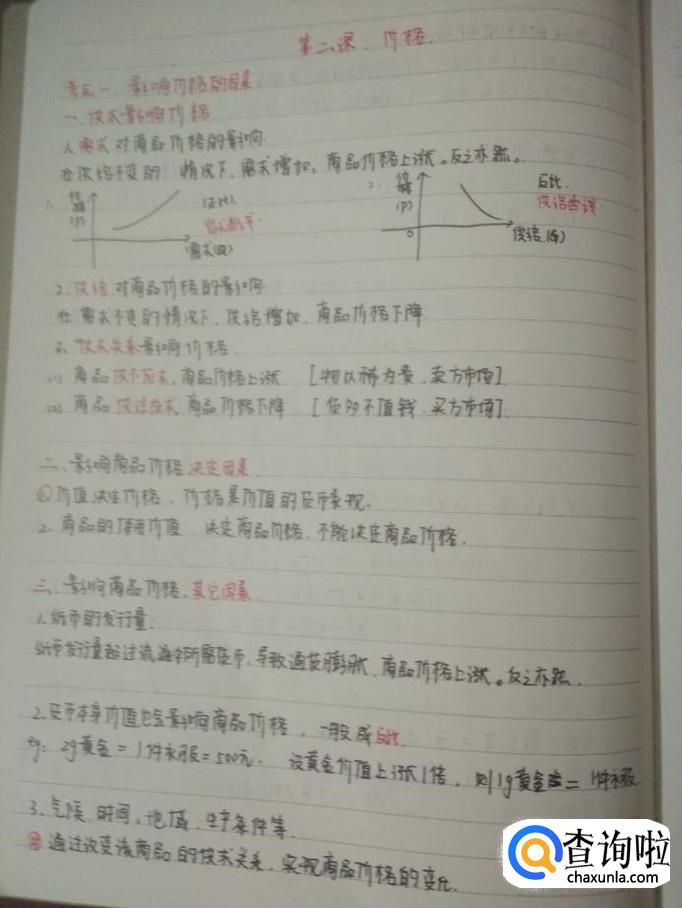 第二课 价格.
考点一 影响价格的因素
一、供求影响价格
1、需求对商品价格的影响.
在供给不变的 情况下,需求增加,商品价格上涨。反之亦然。
价格(P) 正比 需求(Q)
2. 价格(P) 反比. 供给曲线 0 供给(Q)
2、供给对商品价格的影响
在 需求不变的情况下,供给增加,商品价格下降
供求关系影响价格
(1) 商品供不应求,商品价格上涨 [物以稀为贵.卖方市场]
(2) 商品供过于求 商品价格下降 [货多不值钱.买方市场].
二、影响商品价格决定因素
①价值决定价格,价格是价值的货币表现.
2、商品的使用价值 决定商品价格,不能决定商品价格.
三、影响商品价格.其它因素
1、纸币的发行量.
纸币发行量超过流通中所需货币,导致通货膨胀,商品价格上涨。反之亦然.
2.货币本身价值也会影响商品价格,一般成反比.
eg:2g黄金=1件衣服=500元. 设黄金价值上涨1倍,则1g黄金=1件衣服
3、气候、时间、地域、生产条件等.
通过改变该商品的供求关系,实现商品价格的变化.
查询啦
chaxunla.com